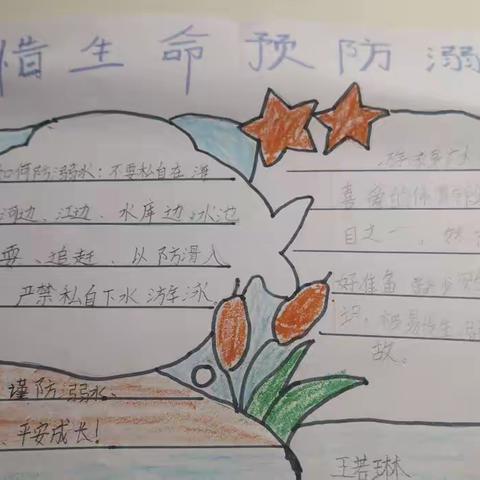 惜生命预防溺
如何防溺水：不要私自在海
河边、江边、水库边、水池
耍、追赶、以防滑入
严禁私自下水游泳。
谨防溺水、
、平安成长！
喜爱的体育
目之一，
好准备
识，极易
故。
王若琳